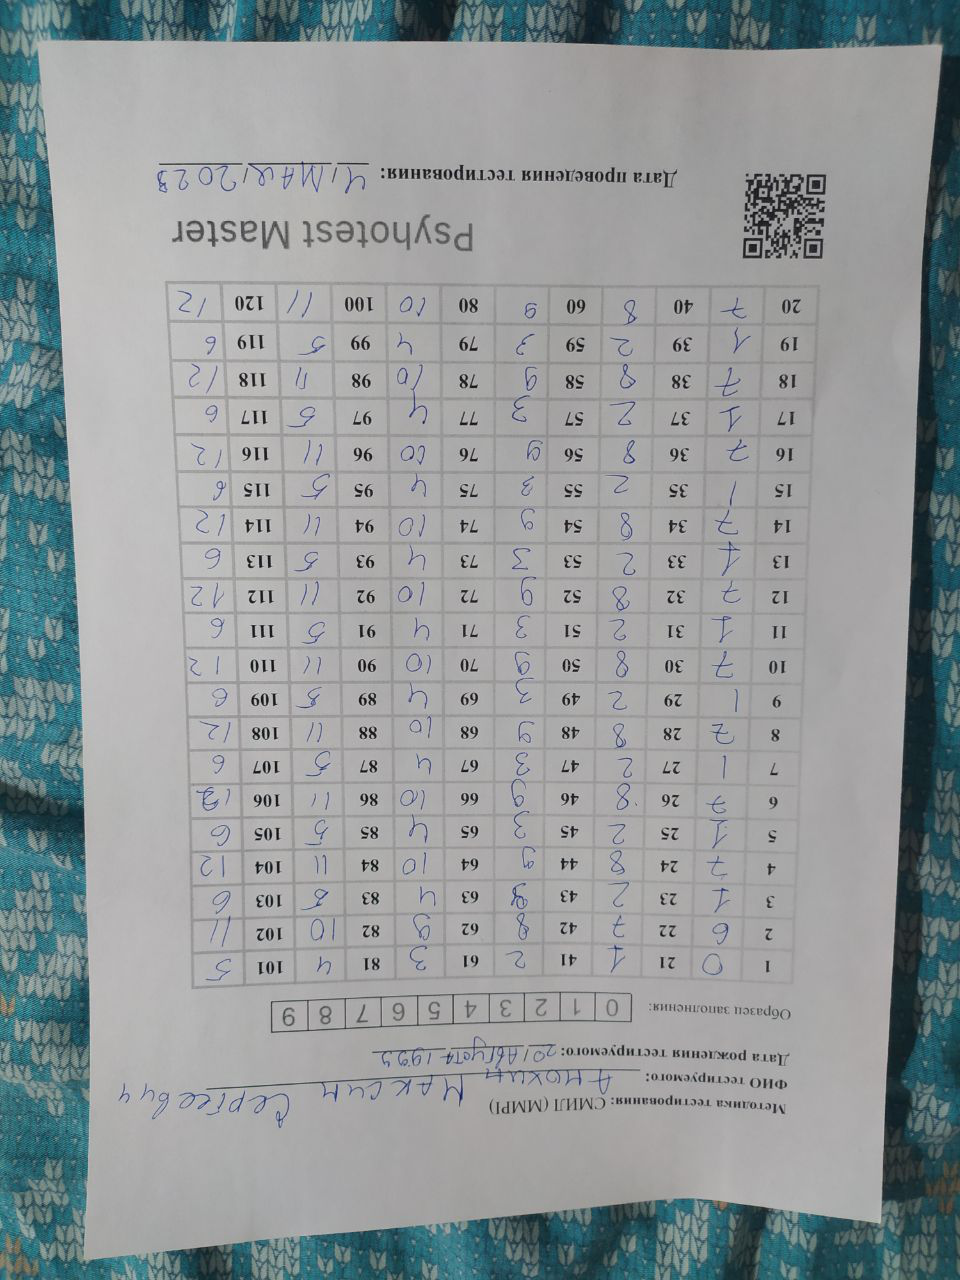 Методика тестирования: СМИЛ (MMPI)
ФИО тестируемого: Анохин Максим Сергеевич
Дата рождения тестируемого: 20/Августа/1999
Образец заполнения: 0 1 2 3 4 5 6 7 8 9
1 0 21 1 41 2 61 3 81 4 101 5
2 6 22 7 42 8 62 9 82 10 102 11
3 1 23 2 43 3 63 4 83 5 103 6
4 7 24 8 44 9 64 10 84 11 104 12
5 1 25 2 45 3 65 4 85 5 105 6
6 7 26 8 46 9 66 10 86 11 106 12
7 1 27 2 47 3 67 4 87 5 107 6
8 7 28 8 48 9 68 10 88 11 108 12
9 1 29 2 49 3 69 4 89 5 109 6
10 7 30 8 50 9 70 10 90 11 110 12
11 1 31 2 51 3 71 4 91 5 111 6
12 7 32 8 52 9 72 10 92 11 112 12
13 1 33 2 53 3 73 4 93 5 113 6
14 7 34 8 54 9 74 10 94 11 114 12
15 1 35 2 55 3 75 4 95 5 115 6
16 7 36 8 56 9 76 10 96 11 116 12
17 1 37 2 57 3 77 4 97 5 117 6
18 7 38 8 58 9 78 10 98 11 118 12
19 1 39 2 59 3 79 4 99 5 119 6
20 7 40 8 60 9 80 10 100 11 120 12
Psyhotest Master
Дата проведения тестирования: 4/МАЯ/2023